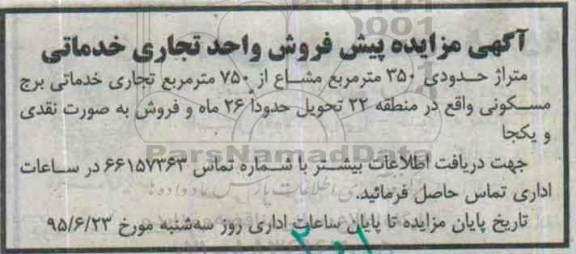 آگهی مزایده پیش فروش واحد تجاری خدماتی
متراژ حدودی ۳۵۰ مترمربع مشاع از ۷۵۰ مترمربع تجاری خدماتی برج
مسکونی واقع در منطقه ۲۲ تحویل حدوداً ۲۶ ماه و فروش به صورت نقدی
و یکجا
ParsNamadData
جهت دریافت اطلاعات بیشتر با شماره تماس ۶۶۱۵۷۳۶۳ در ساعات
اداری تماس حاصل فرمائید.
تاریخ پایان مزایده تا پایان ساعات اداری روز سه‌شنبه مورخ ۹۵/۶/۲۳